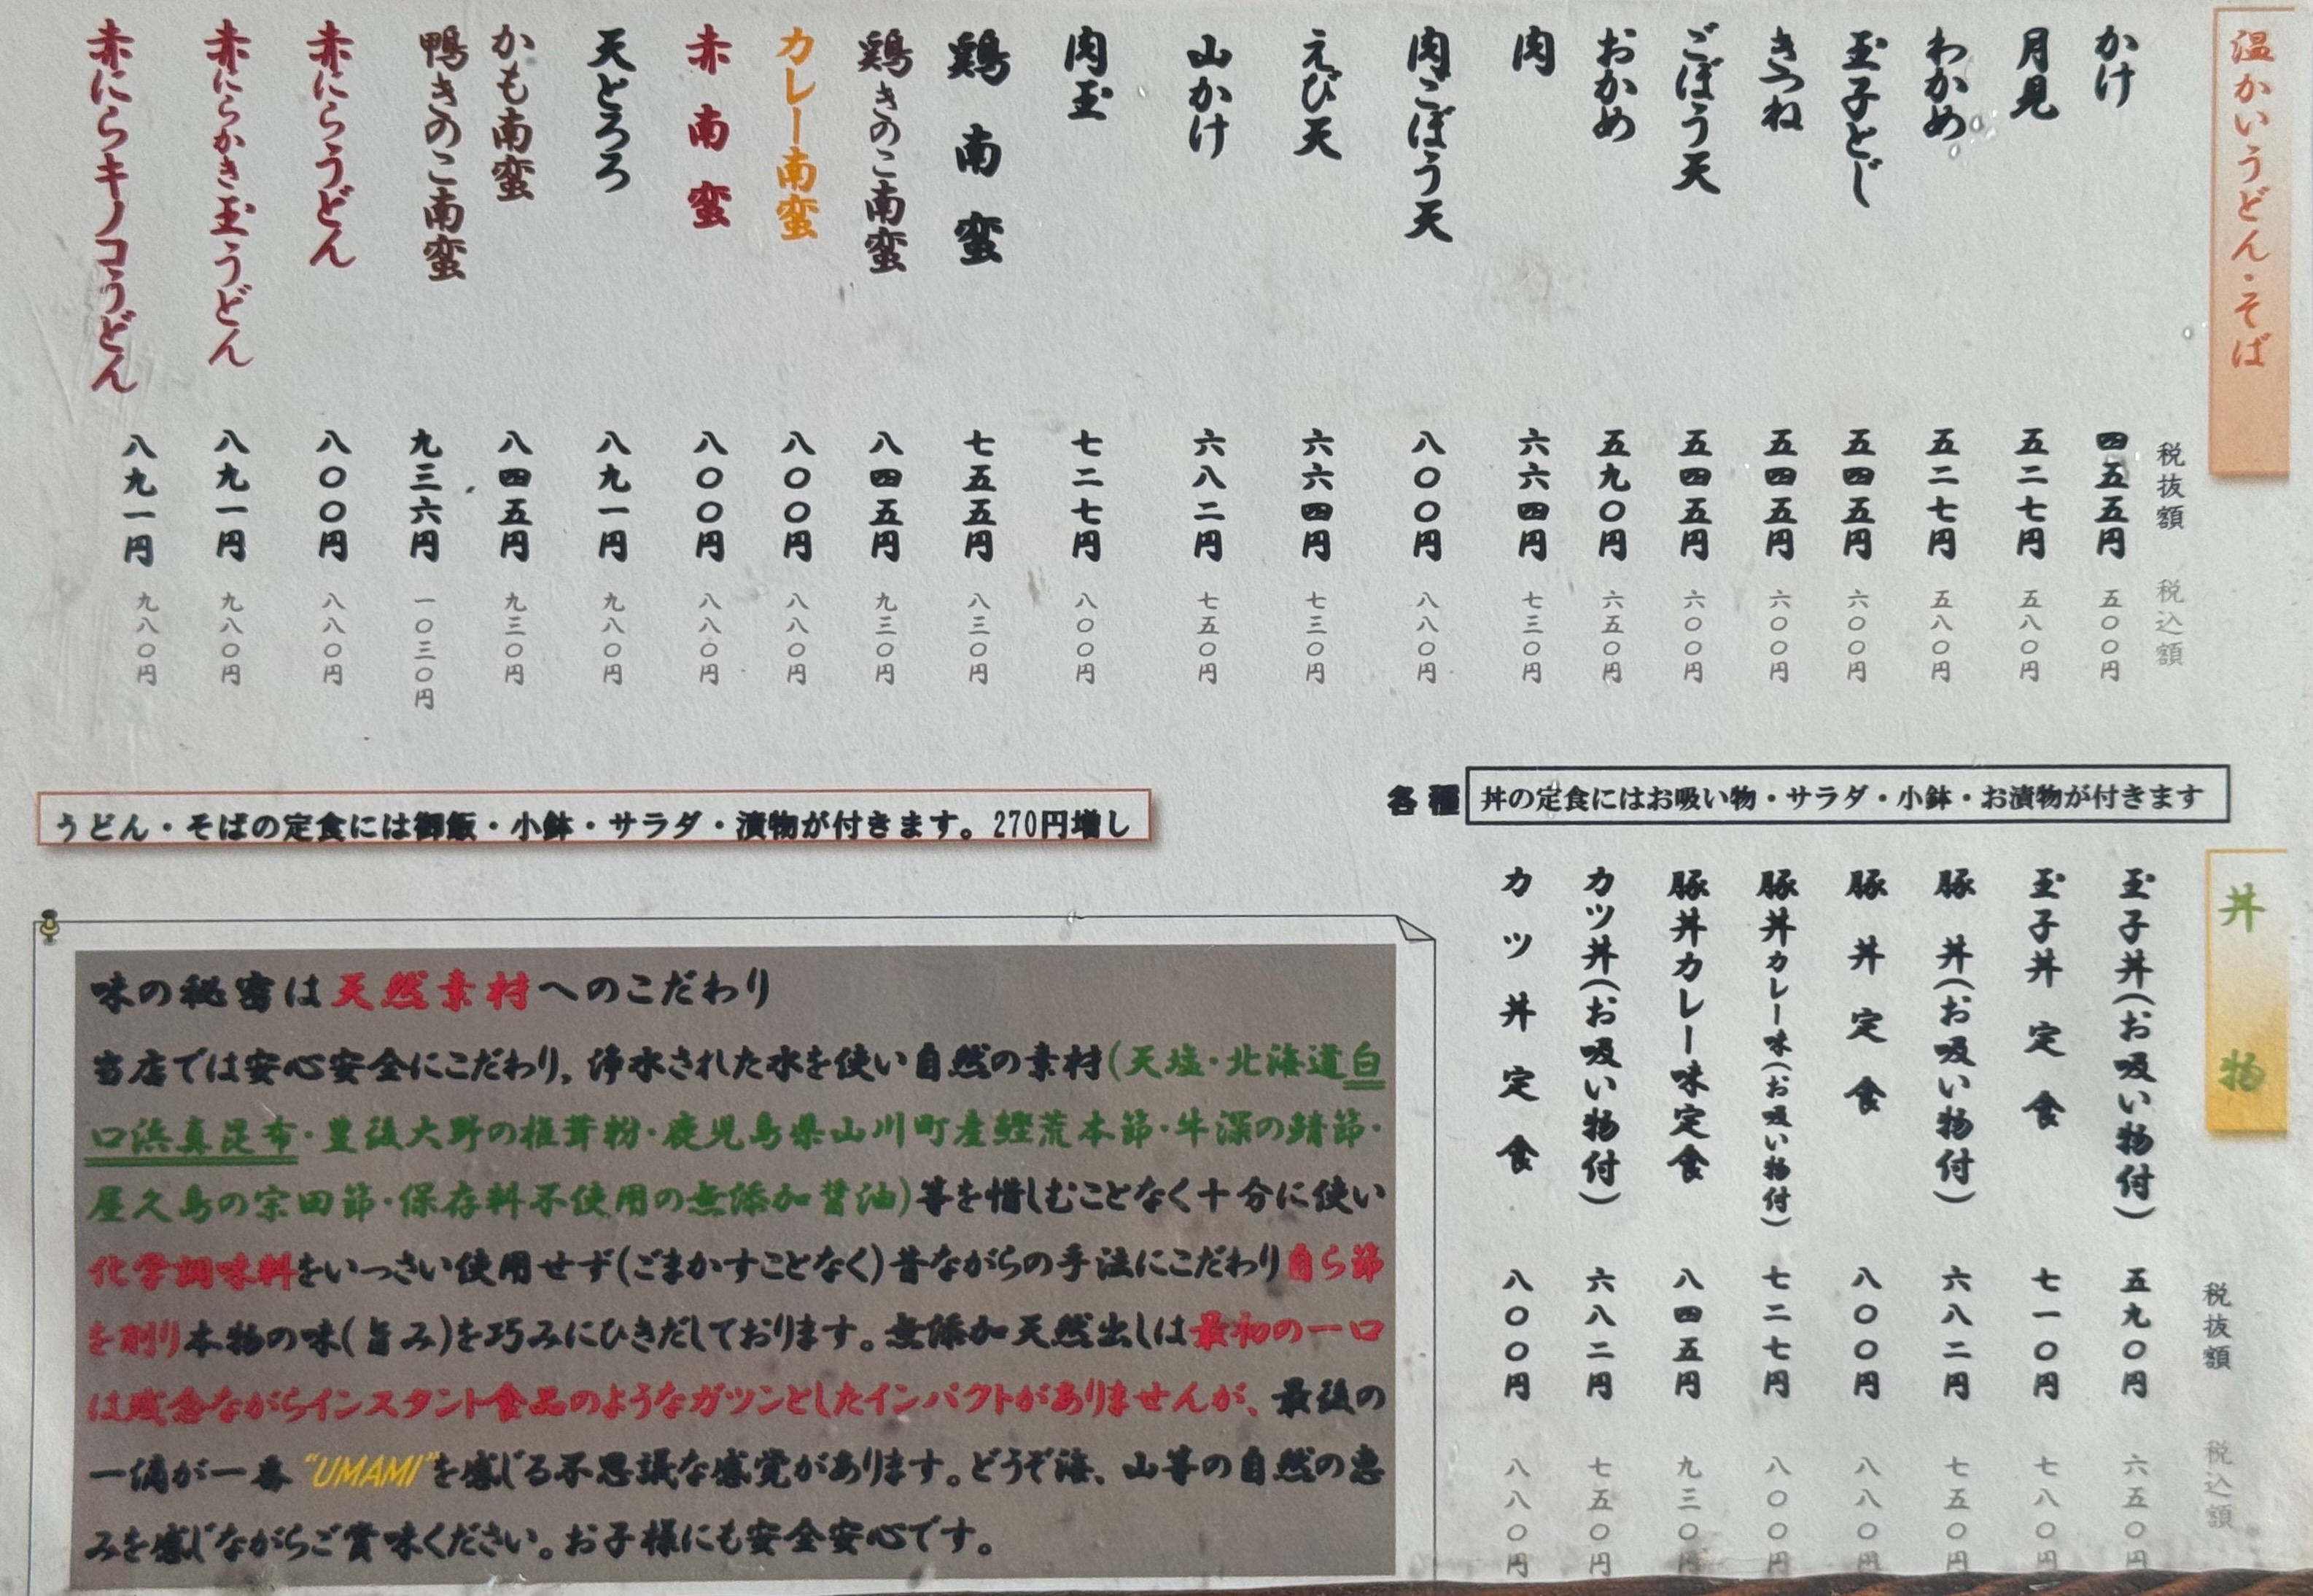 温かいうどん・そば
税抜額 税込額
かけ 四五五円 五〇〇円
月見 五二七円 五八〇円
わかめ 五二七円 五八〇円
玉子とじ 五四五円 六〇〇円
きつね 五四五円 六〇〇円
ごぼう天 五四五円 六〇〇円
おかめ 五九〇円 六五〇円
肉 六六四円 七三〇円
肉ごぼう天 八〇〇円 八八〇円
えび天 六六四円 七三〇円
山かけ 六八二円 七五〇円
肉玉 七二七円 八〇〇円
鶏南蛮 七五五円 八三〇円
鶏きのこ南蛮 八四五円 九三〇円
カレー南蛮 八〇〇円 八八〇円
赤南蛮 八〇〇円 八八〇円
天とろろ 八九一円 九八〇円
かも南蛮 八四五円 九三〇円
鴨きのこ南蛮 九三六円 一〇三〇円
赤にらうどん 八〇〇円 八八〇円
赤にらかき玉うどん 八九一円 九八〇円
赤にらキノコうどん 八九一円 九八〇円
うどん・そばの定食には御飯・小鉢・サラダ・漬物が付きます。270円増し
各種 丼の定食にはお吸い物・サラダ・小鉢・お漬物が付きます
丼物
税抜額 税込額
玉子丼(お吸い物付) 五九〇円 六五〇円
玉子丼定食 七一〇円 七八〇円
豚丼(お吸い物付) 六八二円 七五〇円
豚丼定食 八〇〇円 八八〇円
豚丼カレー味(お吸い物付) 七二七円 八〇〇円
豚丼カレー味定食 八四五円 九三〇円
カツ丼(お吸い物付) 六八二円 七五〇円
カツ丼定食 八〇〇円 八八〇円
味の秘密は天然素材へのこだわり
当店では安心安全にこだわり,浄水された水を使い自然の素材(天塩・北海道白
口浜真昆布・豊後大野の椎茸粉・鹿児島県山川町産鰹荒本節・牛深の鯖節・
屋久島の宗田節・保存料不使用の無添加醤油)等を惜しむことなく十分に使い
化学調味料をいっさい使用せず(ごまかすことなく)昔ながらの手法にこだわり自ら節
を削り本物の味(旨み)を巧みにひきだしております。無添加天然出しは最初の一口
は残念ながらインスタント食品のようなガツンとしたインパクトがありませんが、最後の
一滴が一番“UMAMI”を感じる不思議な感覚があります。どうぞ海、山等の自然の恵
みを感じながらご賞味ください。お子様にも安全安心です。